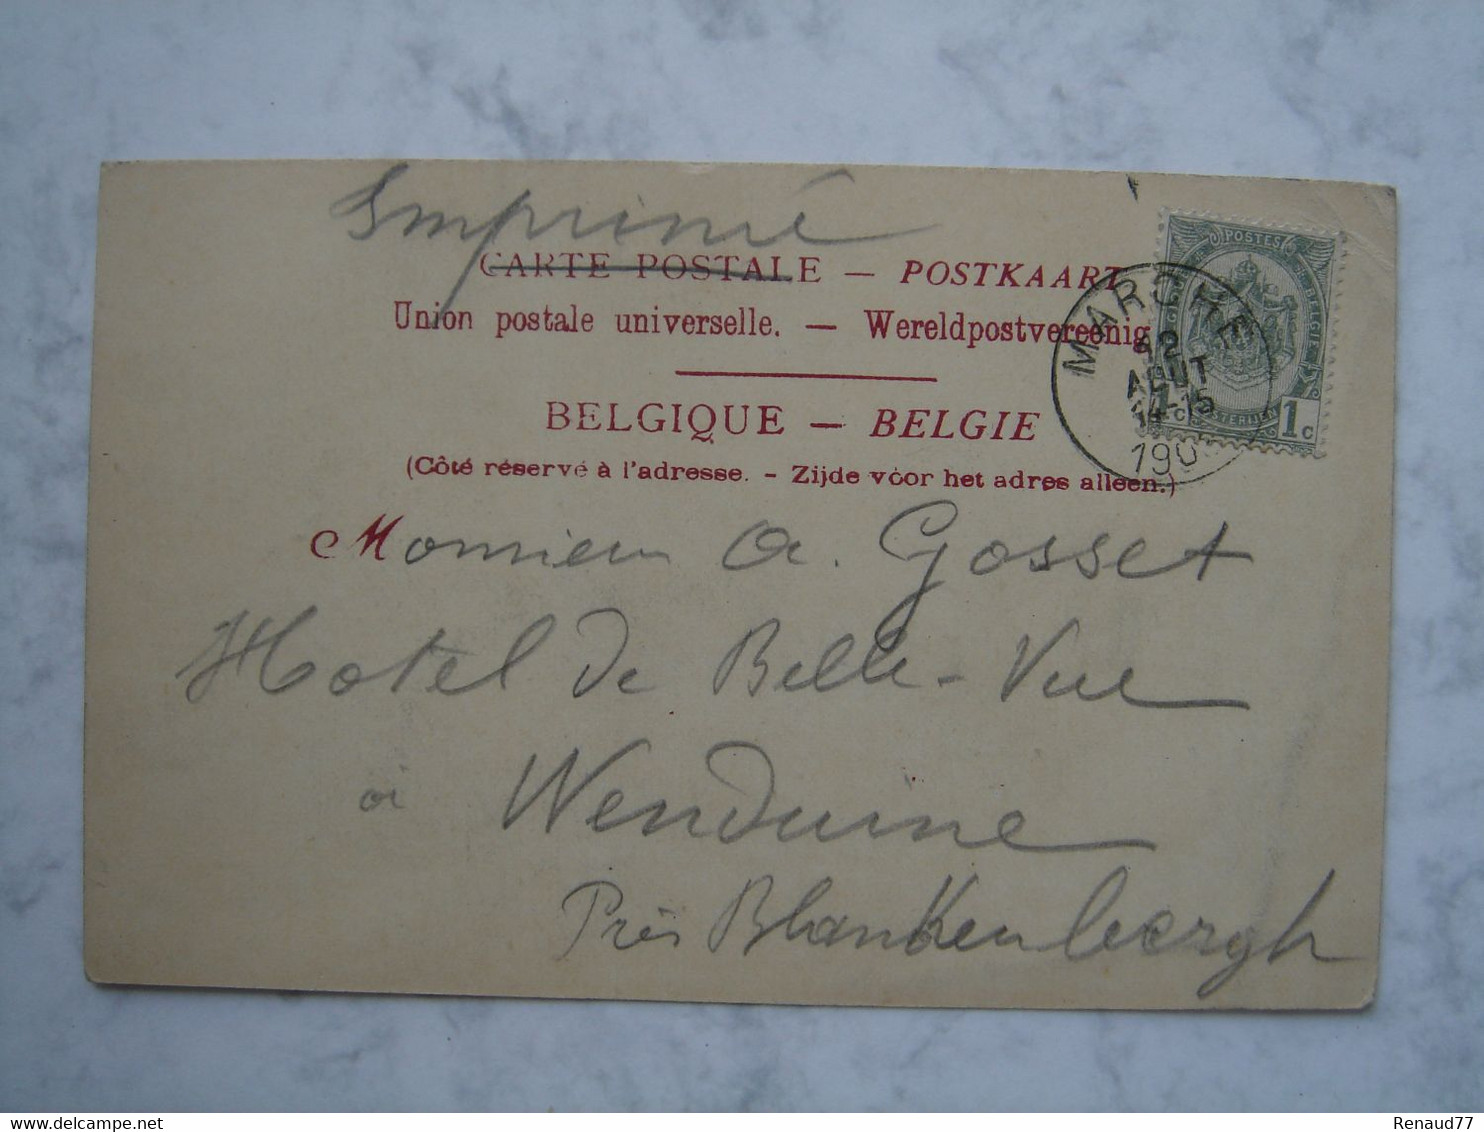 Imprimé
CARTE POSTALE — POSTKAART
Union postale universelle. — Wereldpostvereenig
BELGIQUE — BELGIE
(Côté réservé à l'adresse. - Zijde vóor het adres alleen.)
Monsieur A. Gosset
Hotel de Belle-Vue
à Wenduine
Près Blankenbergh
POSTES
1c
MARCHE
12
AOUT
14-15
190
delcampe.net
Renaud77